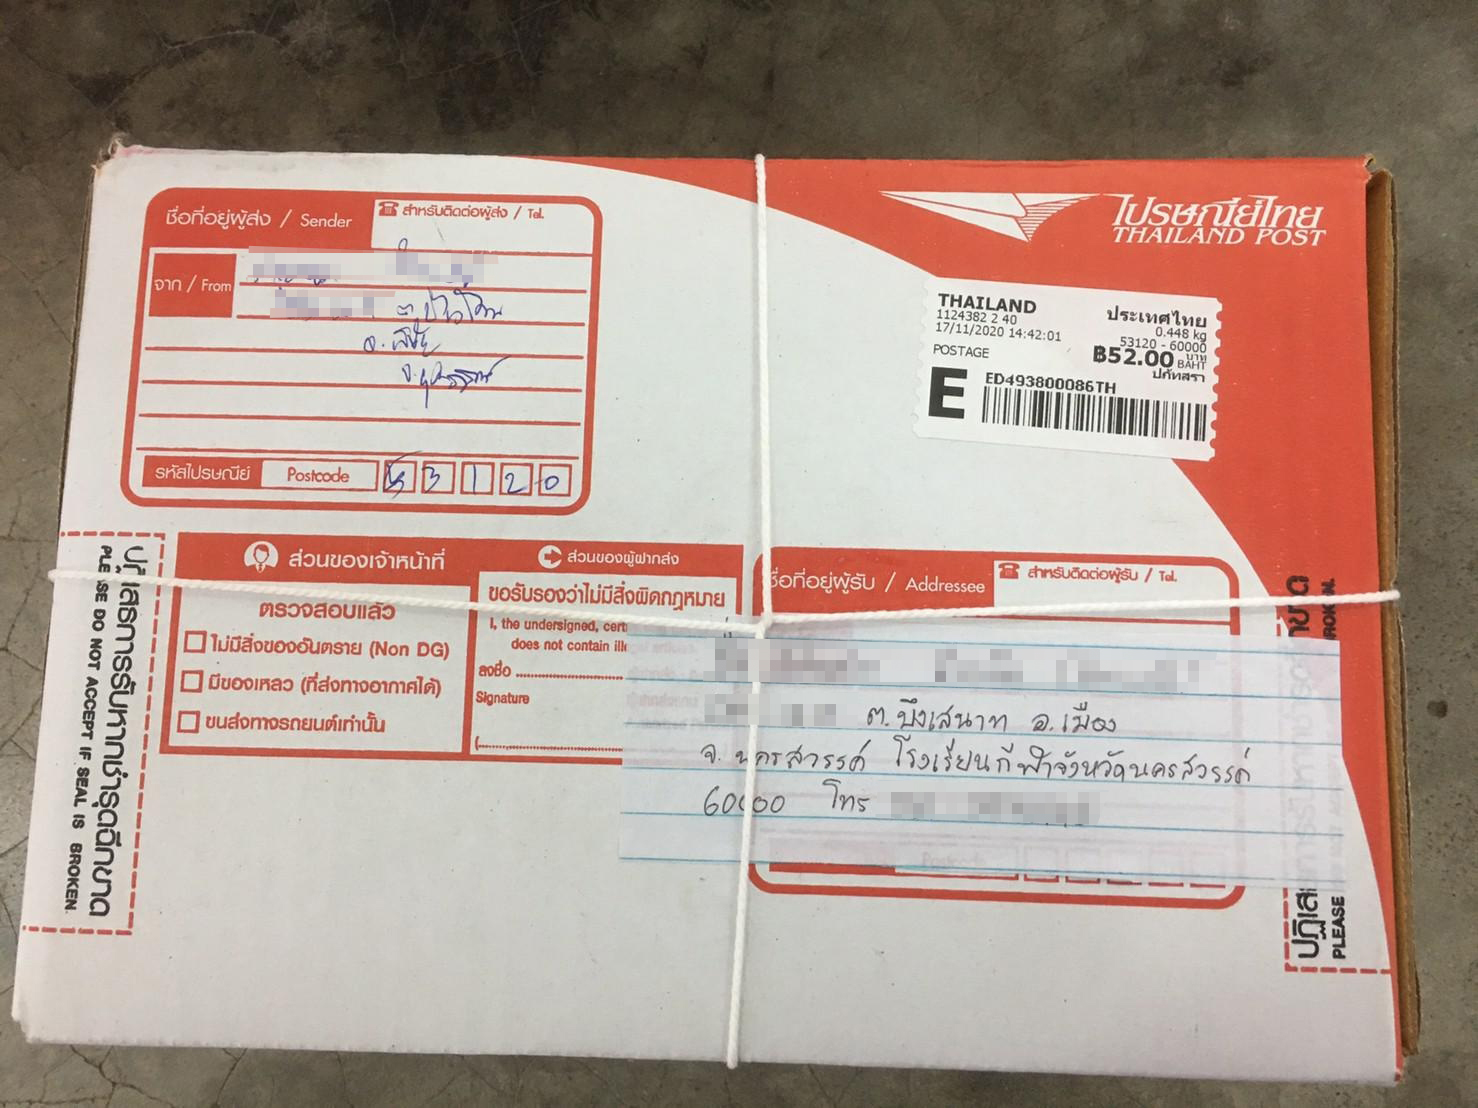 ชื่อที่อยู่ผู้ส่ง / Sender
สำหรับติดต่อผู้ส่ง / Tel.
จาก / From
ต.
อ.
จ.
รหัสไปรษณีย์ Postcode 53120
ไปรษณีย์ไทย
THAILAND POST
THAILAND
ประเทศไทย
1124382 2 40
0.448 kg
17/11/2020 14:42:01
53120 - 60000
POSTAGE
฿52.00 บาท BAHT
ปภัทสรา
E
ED493800086TH
ปฏิเสธการรับหากชำรุดฉีกขาด
PLEASE DO NOT ACCEPT IF SEAL IS BROKEN.
ส่วนของเจ้าหน้าที่
ตรวจสอบแล้ว
ไม่มีสิ่งของอันตราย (Non DG)
มีของเหลว (ที่ส่งทางอากาศได้)
ขนส่งทางรถยนต์เท่านั้น
ส่วนของผู้ฝากส่ง
ขอรับรองว่าไม่มีสิ่งผิดกฎหมาย
I, the undersigned,
does not contain
ลงชื่อ
Signature
ชื่อที่อยู่ผู้รับ / Addressee
สำหรับติดต่อผู้รับ / Tel.
ต.บึงเสนาท อ.เมือง
จ.นครสวรรค์ โรงเรียนกีฬาจังหวัดนครสวรรค์
60000 โทร
Postcode
PLEASE